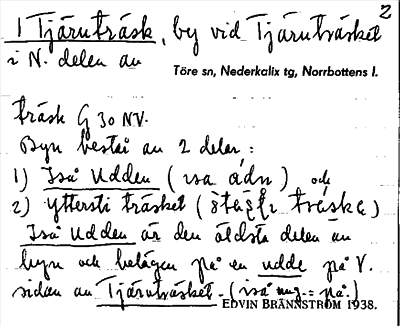 2
1 Tjäruträsk, by vid Tjäruträsket
i N. delen av
Töre sn, Nederkalix tg, Norrbottens l.
träsk G 30 NV.
Byn består av 2 delar:
1) Iså Udden (isa ádn) och
2) Yttersti träsket
Iså Udden är den äldsta delen av
byn och belägen på en udde på V.
sidan av Tjäruträsket. (iså = på.)
EDVIN BRÄNNSTRÖM 1938.